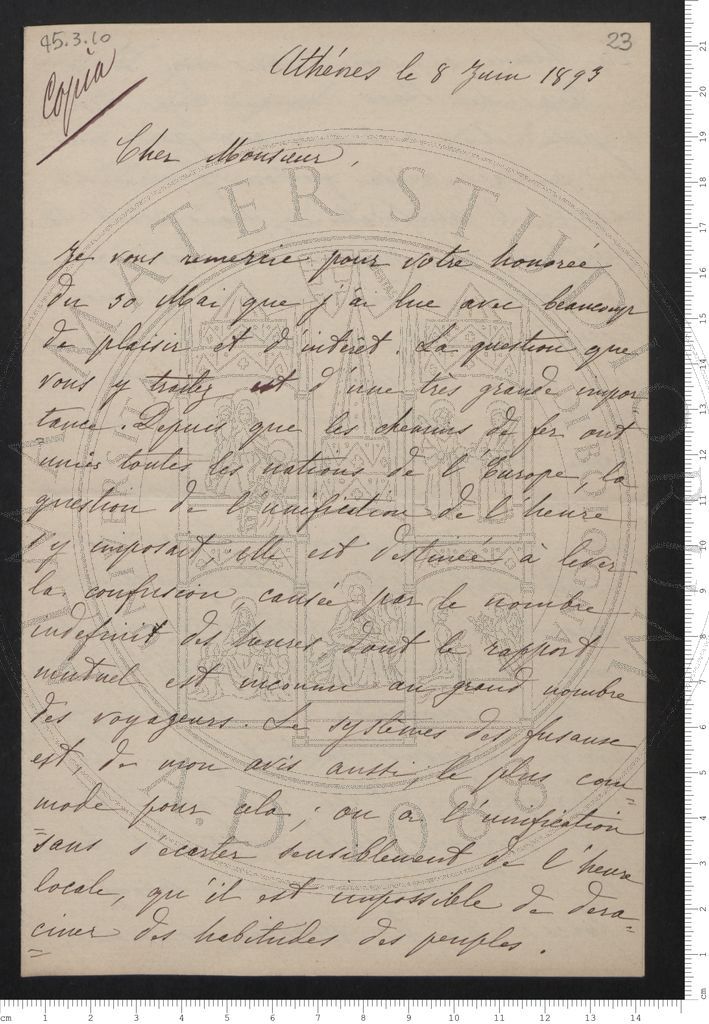 45.3.10
23
Copia
Athénes le 8 Juin 1893
Cher Monsieur,
Je vous remercie pour votre honoreé
du 30 Mai que j'ai lue avec beaucoup
de plaisir et d'intéret. La question que
vous y traitez est d'une très grande impor
tance. Depuis que les chemins de fer ont
unies toutes les nations de l'Europe, la
question de l'unification de l'heure
s'y imposait; elle est destineé à lever
la confusion, causée par le nombre
indefinit des heures, dont le rapport
mutuel est inconnu au grand nombre
des voyageurs. Le systèmes des fuseaux
est, de mon avis aussi, le plus com=
mode pour cela; on a l'unification
=sans s'écarter sensiblement de l'heure
locale, qu'il est impossible de dera=
ciner des habitudes des peuples.
ALMA MATER STUDIORUM
A.D. 1088
cm 1 2 3 4 5 6 7 8 9 10 11 12 13 14
cm 1 2 3 4 5 6 7 8 9 10 11 12 13 14 15 16 17 18 19 20 21